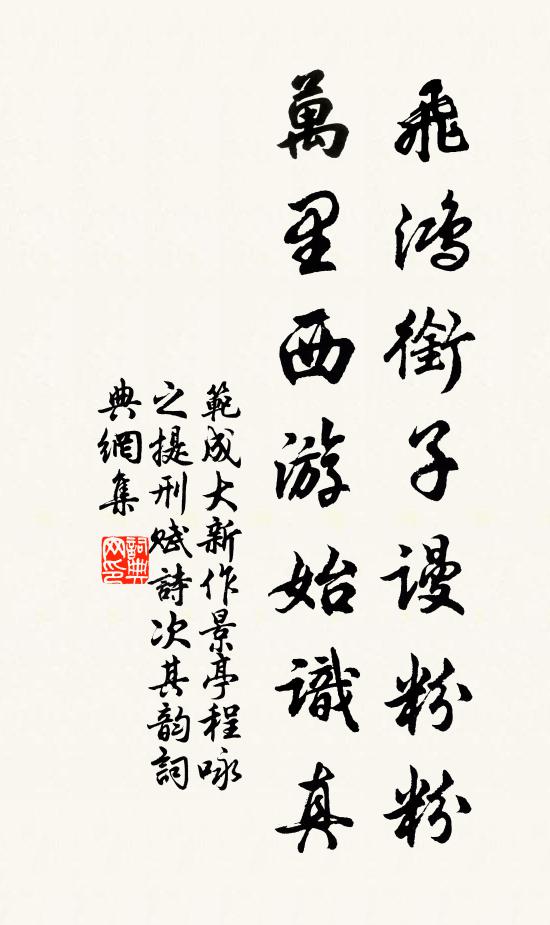 飛鴻銜子謾粉粉
萬里西游始識真
範成大新作景亭程咏
之提刑賦詩次其韵詞
典網集
詞典网印